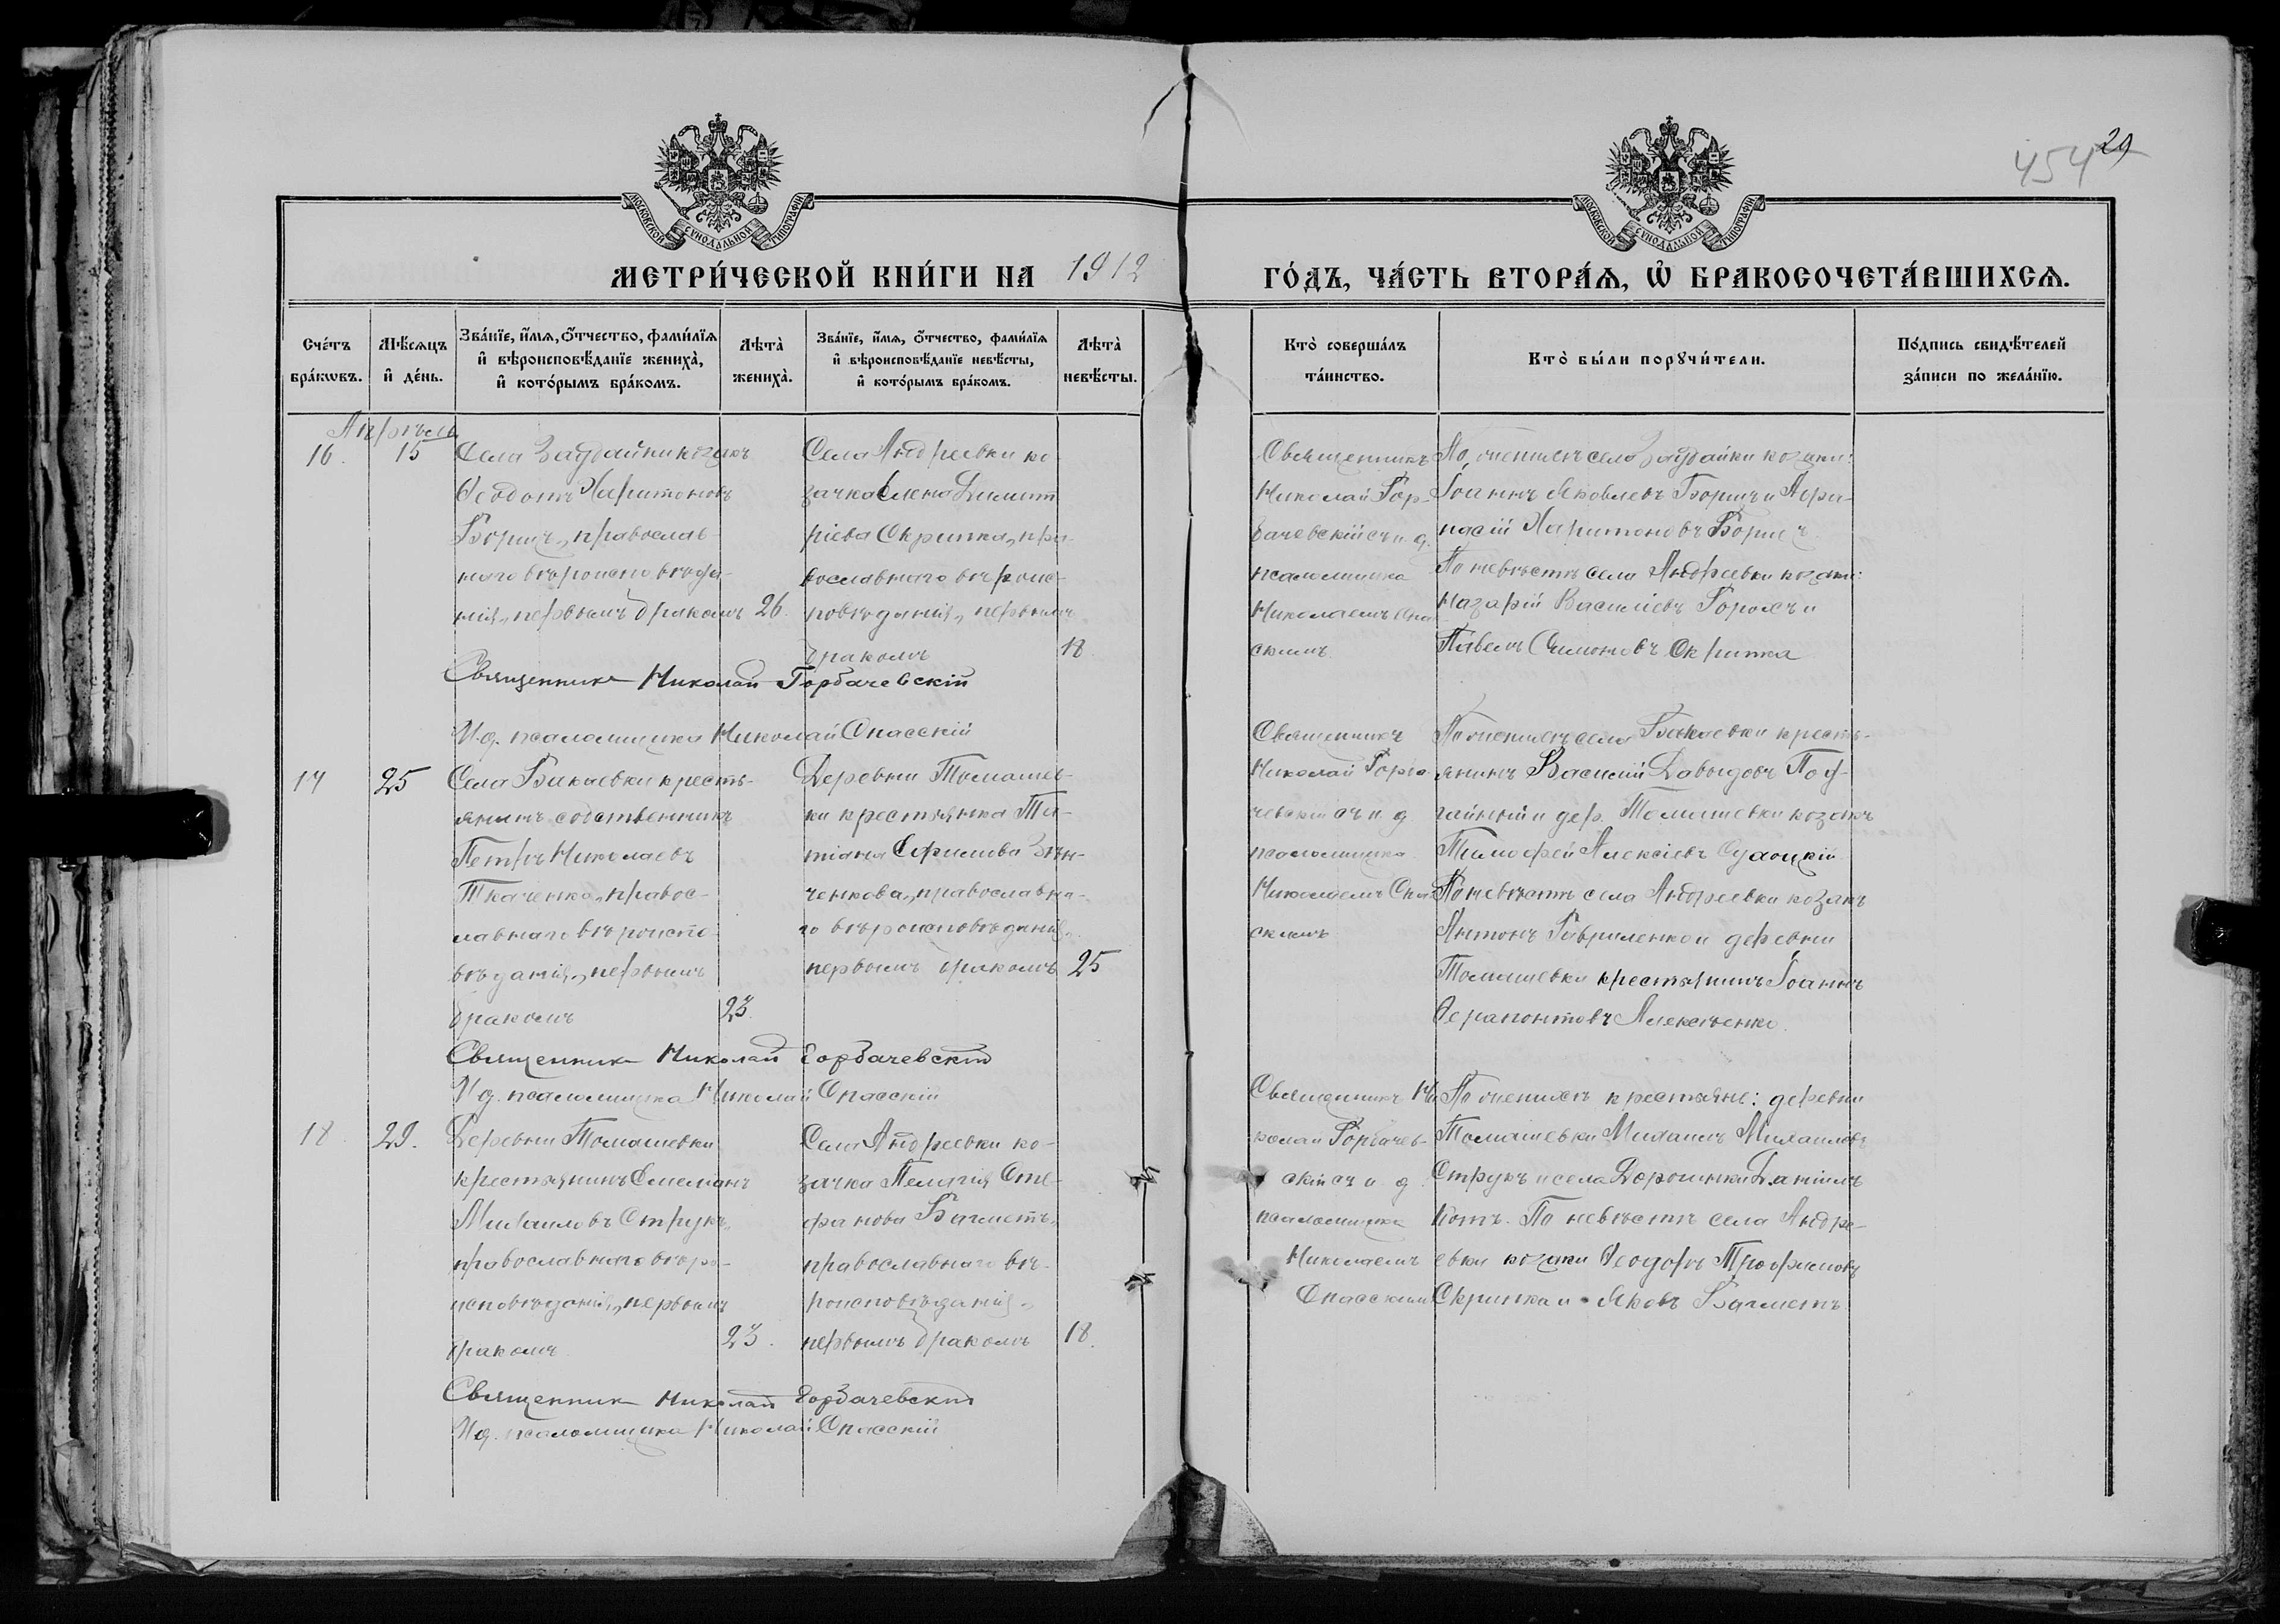 454 29
МОСКОВСКОЙ СУНОДАЛЬНОЙ ТИПОГРАФІИ
МОСКОВСКОЙ СУНОДАЛЬНОЙ ТИПОГРАФІИ
МЕТРИ́ЧЕСКОЙ КНИ́ГИ НА 1912 ГО́ДЪ, ЧА́СТЬ ВТОРА́Ѧ, Ѡ҆ БРАКОСОЧЕТА́ВШИХСѦ.
Сче́тъ бра́кѡвъ.
Мѣ́сѧцъ и҆ де́нь.
Зва́нїе, и҆́мѧ, ѻ҆́тчество, фами́лїѧ и҆ вѣроисповѣ́данїе жениха̀, и҆ кото́рымъ бра́комъ.
Лѣта̀ жениха̀.
Зва́нїе, и҆́мѧ, ѻ҆́тчество, фами́лїѧ и҆ вѣроисповѣ́данїе невѣ́сты, и҆ кото́рымъ бра́комъ.
Лѣта̀ невѣ́сты.
Кто̀ соверша́лъ та́инство.
Кто̀ бы́ли порꙋчи́тели.
По́дпись свидѣ́телей за́писи по жела́нїю.
Апрѣль
16. 15
Села Заудайки козакъ
Феодотъ Харитоновъ
Борщъ, православ-
наго вѣроисповѣда-
нія, первымъ бракомъ 26.
Села Андреевки ко
зачка Елена Димит
ріева Скрипка, пра-
вославнаго вѣроис-
повѣданія, первымъ
бракомъ 18
Священникъ
Николай Гор-
бачевскій съ и. д.
псаломщика
Николаемъ Спас
скимъ
По женихѣ села Заудайки козаки:
Іоаннъ Яковлевъ Борщъ и Афа-
насій Харитоновъ Борщъ
По невѣстѣ села Андреевки козаки:
Назарій Василіевъ и
Павелъ Симоновъ Скрипка
Священникъ Николай Горбачевскій
И. д. псаломщика Николай Спасскій
17 25
Села Бакаевки кресть-
янинъ собственникъ
Петръ Николаевъ
Ткаченко, правос-
лавнаго вѣроиспо
вѣданія, первымъ
бракомъ 23.
Деревни Томашев-
ки крестьянка Та-
тіана Ефимова Зѣн-
ченкова, православна-
го вѣроисповѣданія,
первымъ бракомъ 25
Священникъ
Николай Горба
чевскій съ и. д
псаломщика
Николаемъ Спас
скимъ
По женихѣ села Бакаевки кресть-
янинъ Василій Давидовъ
и дер. Томашевки козакъ
Тимофей Алексіевъ
По невѣстѣ села Андреевки козакъ
Антонъ Гавриленко и деревни
Томашевки крестьянинъ Іоаннъ
Ферапонтовъ Алексѣенко.
Священникъ Николай Горбачевскій
И. д. псаломщика Николай Спасскій
18 29.
Деревни Томашевки
крестьянинъ Емеліанъ
Михаиловъ Струкъ,
православнаго вѣро-
исповѣданія, первымъ
бракомъ 23.
Села Андреевки ко-
зачка Пелагія Сте-
фанова Багметъ,
православнаго вѣ-
роисповѣданія,
первымъ бракомъ 18.
Священникъ Ни
колай Горбачев-
скій съ и. д.
псаломщика
Николаемъ
Спасскимъ
По женихѣ крестьяне: деревни
Томашевки Михаилъ Михаиловъ
Струкъ и села Дорогинки Даніилъ
Котъ. По невѣстѣ села Андре-
евки козаки Феодоръ Трофимовъ
Скрипка и Яковъ Багметъ.
Священникъ Николай Горбачевскій
И. д. псаломщика Николай Спасскій